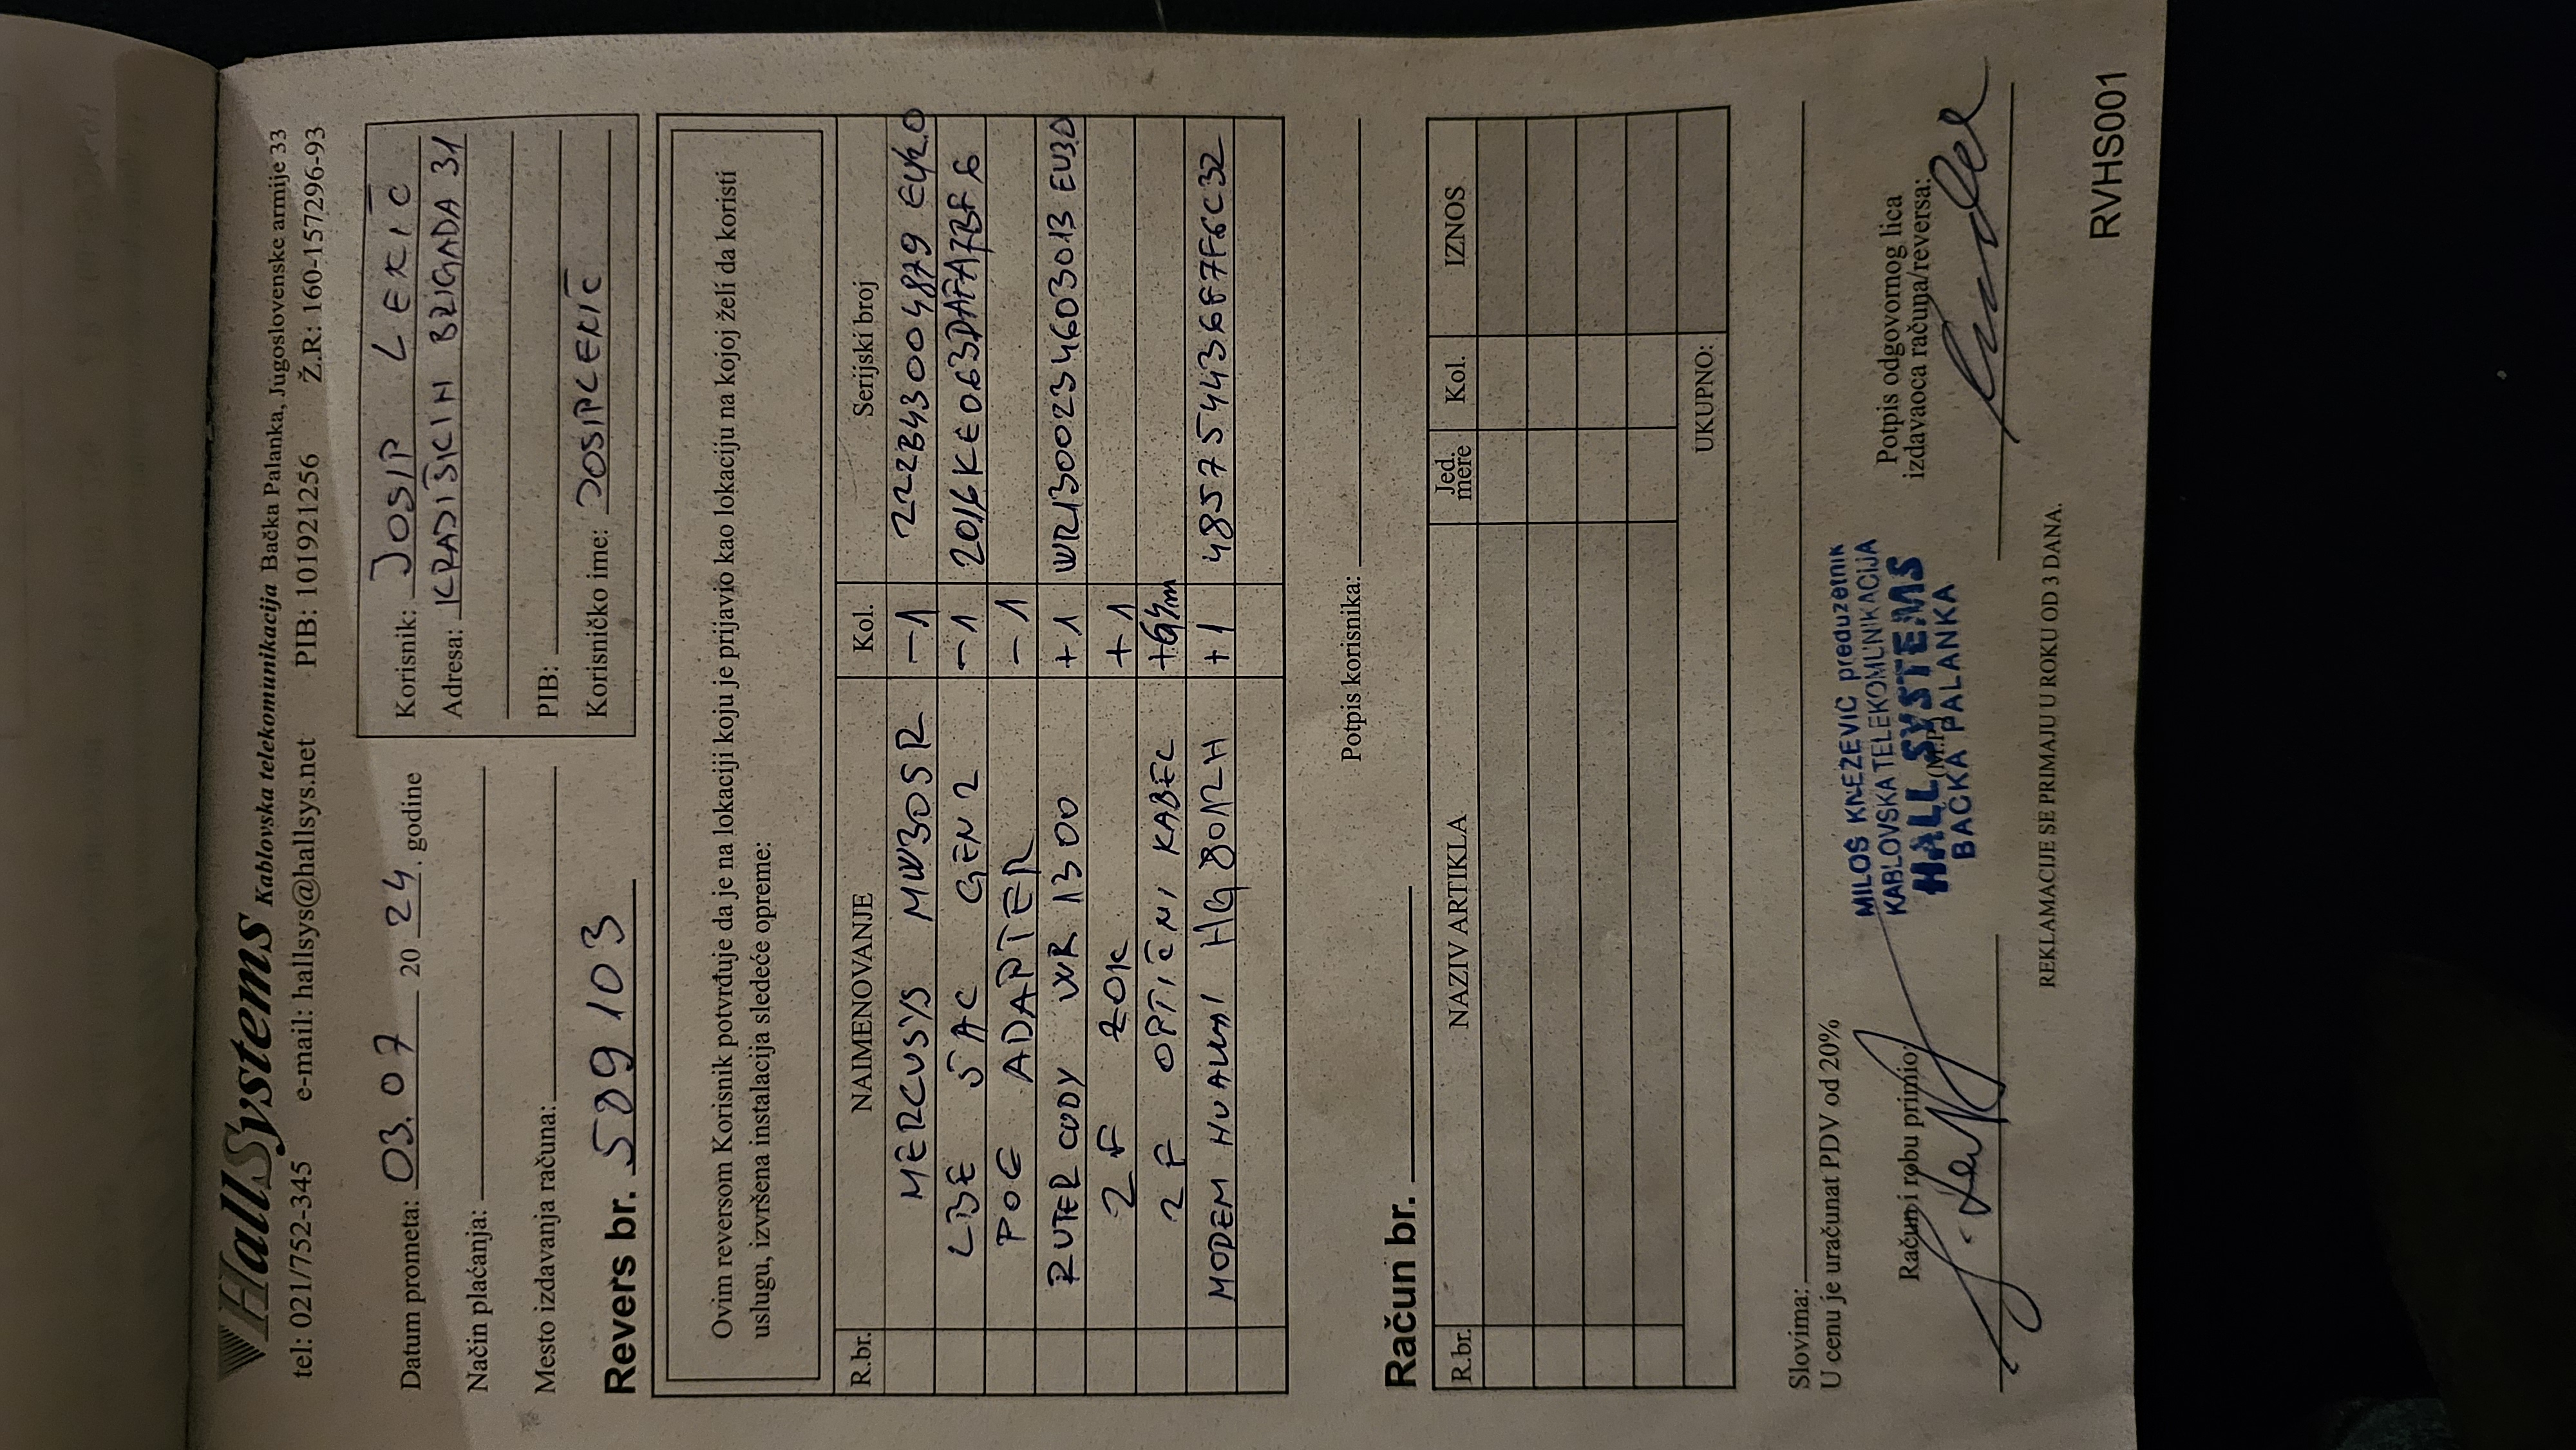 HallSystems Kablovska telekomunikacija Bačka Palanka, Jugoslovenske armije 33
tel: 021/752-345 e-mail: hallsys@hallsys.net PIB: 101921256 Ž.R: 160-157296-93
Datum prometa: 03.07 2024. godine
Način plaćanja:
Mesto izdavanja računa:
Revers br. 589103
Korisnik: JOSIP LEKIĆ
Adresa: KRAJIŠKIH BRIGADA 31
PIB:
Korisničko ime: JOSIPLEKIĆ
Ovim reversom Korisnik potvrđuje da je na lokaciji koju je prijavio kao lokaciju na kojoj želi da koristi
uslugu, izvršena instalacija sledeće opreme:
R.br. NAIMENOVANJE Kol. Serijski broj
MERCUSYS MW305R -1 222B43004879
LBE 5AC GEN2 -1
POE ADAPTER -1
RUTER CUDY WR1300 +1 WR13000234603013
2F ZOK +1
2F OPTIČNI KABEL
MODEM HUAWEI HG8012H +1 485754436EF7F6C32
Potpis korisnika:
Račun br.
R.br. NAZIV ARTIKLA Jed. mere Kol. IZNOS
UKUPNO:
Slovima:
U cenu je uračunat PDV od 20%
Račun i robu primio:
MILOŠ KNEŽEVIĆ preduzetnik
KABLOVSKA TELEKOMUNIKACIJA
HALL SYSTEMS
BAČKA PALANKA
(M.P.)
Potpis odgovornog lica
izdavaoca računa/reversa:
REKLAMACIJE SE PRIMAJU U ROKU OD 3 DANA.
RVHS001